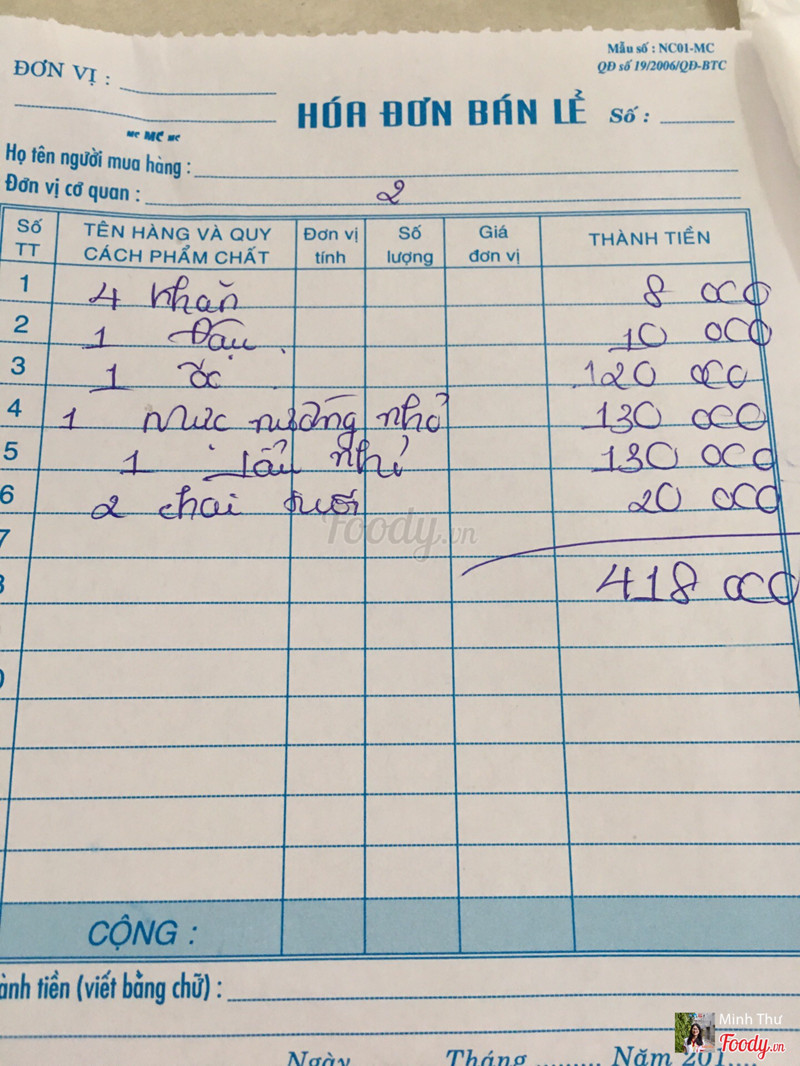 Mẫu số : NC01-MC
QĐ số 19/2006/QĐ-BTC
ĐƠN VỊ :
HÓA ĐƠN BÁN LẺ Số :
MC MC MC
Họ tên người mua hàng :
Đơn vị cơ quan : 2
Số TT TÊN HÀNG VÀ QUY CÁCH PHẨM CHẤT Đơn vị tính Số lượng Giá đơn vị THÀNH TIỀN
1 4 khăn 8 000
2 1 Đậu 10 000
3 1 ốc 120 000
4 1 mực nướng nhỏ 130 000
5 1 lẩu nhỏ 130 000
6 2 chai 20 000
7
8 418 000
Foody.vn
CỘNG :
ành tiền (viết bằng chữ) :
Minh Thư
Foody.vn
Ngày Tháng ......... Năm 201